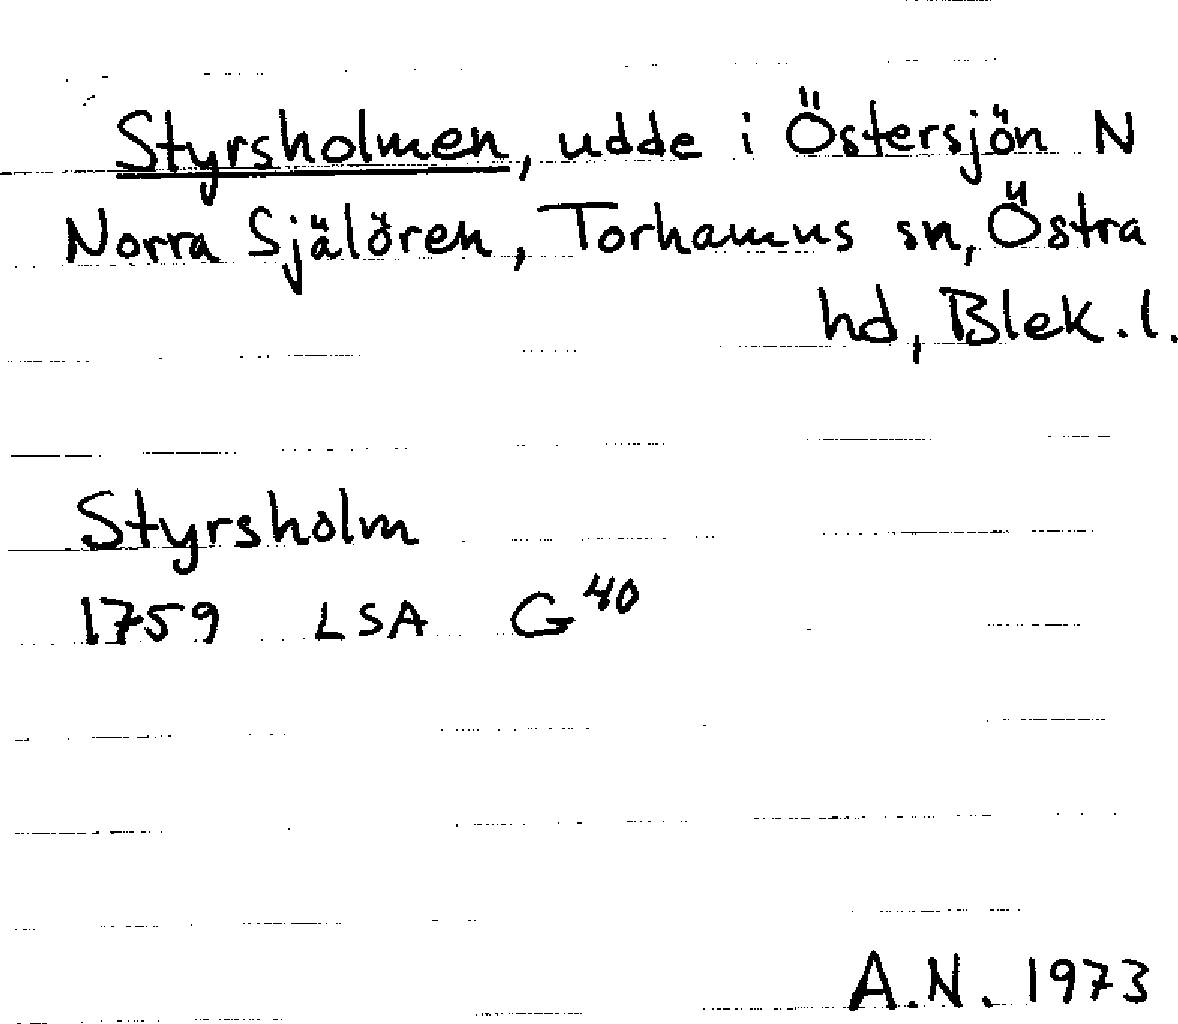 Styrsholmen, udde i Östersjön N
Norra Själören, Torhamns sn, Östra
hd, Blek. l.
Styrsholm
1759 LSA G 40
A.N. 1973